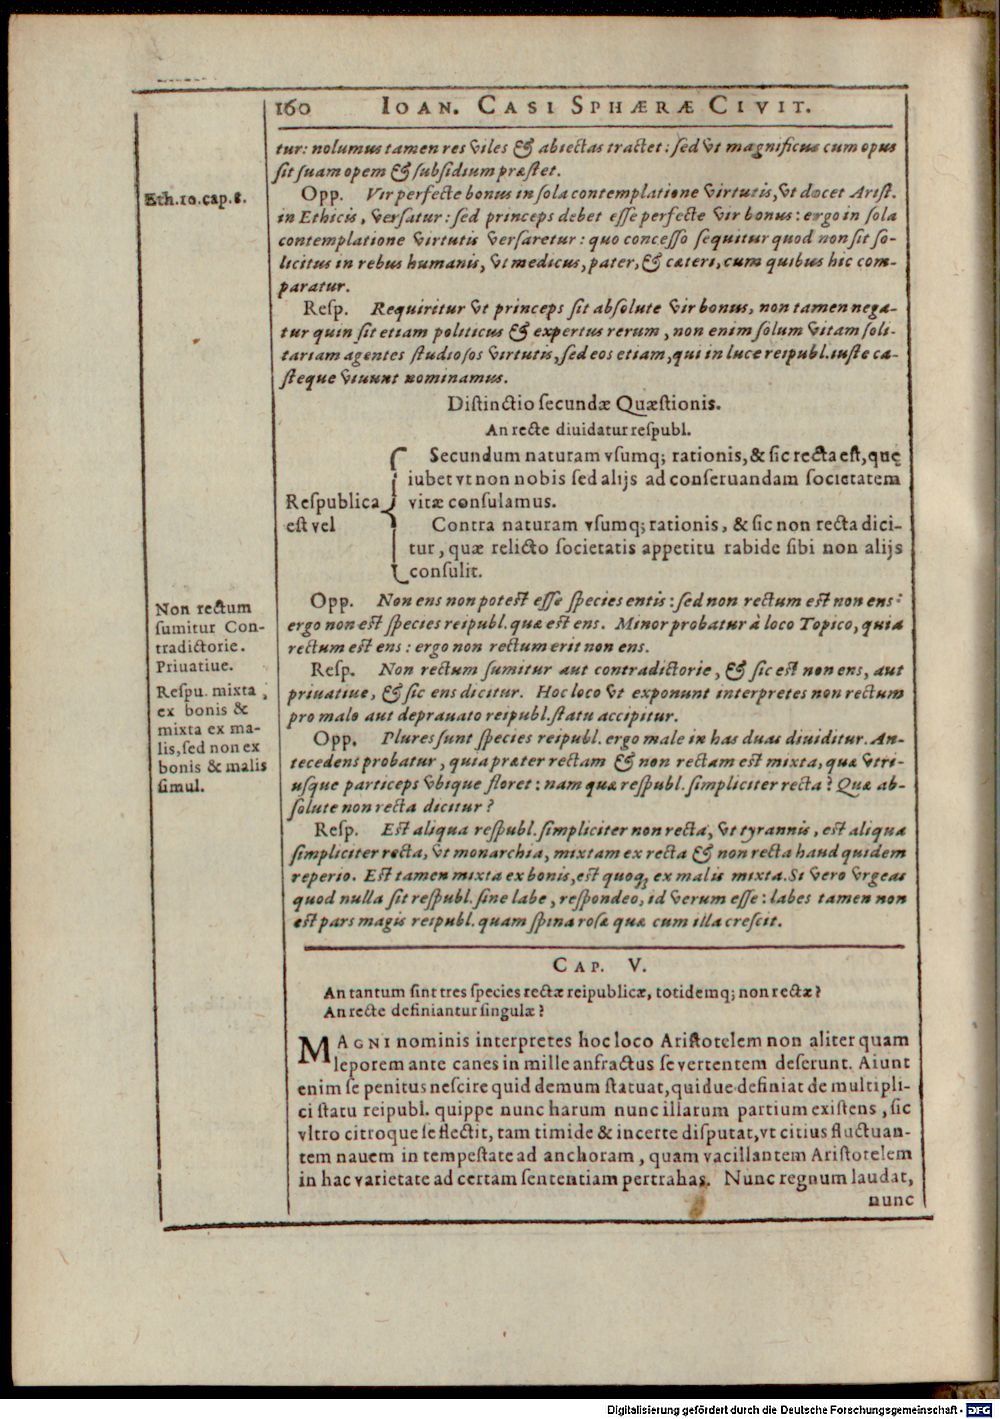 160 IOAN. CASI SPHÆRÆ CIVIT.
tur: nolumus tamen res viles & abiectas tractet: sed vt magnificus cum opus
sit suam opem & subsidium præstet.
Eth.10.cap.8.
Opp. Vir perfecte bonus in sola contemplatione virtutis, vt docet Arist.
in Ethicis, versatur: sed princeps debet esse perfecte vir bonus: ergo in sola
contemplatione virtutis versaretur: quo concesso sequitur quod non sit so-
licitus in rebus humanis, vt medicus, pater, & cæteri, cum quibus hic com-
paratur.
Resp. Requiritur vt princeps sit absolute vir bonus, non tamen nega-
tur quin sit etiam politicus & expertus rerum, non enim solum vitam soli-
tariam agentes studiosos virtutis, sed eos etiam, qui in luce reipubl. iuste ca-
steque viuunt nominamus.
Distinctio secundæ Quæstionis.
An recte diuidatur respubl.
Respublica
est vel
Secundum naturam vsumq; rationis, & sic recta est, quę
iubet vt non nobis sed alijs ad conseruandam societatem
vitæ consulamus.
Contra naturam vsumq; rationis, & sic non recta dici-
tur, quæ relicto societatis appetitu rabide sibi non alijs
consulit.
Non rectum
sumitur Con-
tradictorie.
Priuatiue.
Opp. Non ens non potest esse species entis: sed non rectum est non ens:
ergo non est species reipubl. quæ est ens. Minor probatur à loco Topico, quia
rectum est ens: ergo non rectum erit non ens.
Resp. Non rectum sumitur aut contradictorie, & sic est non ens, aut
priuatiue, & sic ens dicitur. Hoc loco vt exponunt interpretes non rectum
pro malo aut deprauato reipubl. statu accipitur.
Respu. mixta
ex bonis &
mixta ex ma-
lis, sed non ex
bonis & malis
simul.
Opp. Plures sunt species reipubl. ergo male in has duas diuiditur. An-
tecedens probatur, quia præter rectam & non rectam est mixta, quæ vtri-
usque particeps vbique floret: nam quæ respubl. simpliciter recta? Quæ ab-
solute non recta dicitur?
Resp. Est aliqua respubl. simpliciter non recta, vt tyrannis, est aliqua
simpliciter recta, vt monarchia, mixtam ex recta & non recta haud quidem
reperio. Est tamen mixta ex bonis, est quoq; ex malis mixta. Si vero vrgeas
quod nulla sit respubl. sine labe, respondeo, id verum esse: labes tamen non
est pars magis reipubl. quam spina rosæ quæ cum illa crescit.
CAP. V.
An tantum sint tres species rectæ reipublicæ, totidemq; non rectæ?
An recte definiantur singulæ?
MAGNI nominis interpretes hoc loco Aristotelem non aliter quam
leporem ante canes in mille anfractus se vertentem deserunt. Aiunt
enim se penitus nescire quid demum statuat, quidue definiat de multipli-
ci statu reipubl. quippe nunc harum nunc illarum partium existens, sic
vltro citroque se flectit, tam timide & incerte disputat, vt citius fluctuan-
tem nauem in tempestate ad anchoram, quam vacillantem Aristotelem
in hac varietate ad certam sententiam pertrahas. Nunc regnum laudat,
nunc
Digitalisierung gefördert durch die Deutsche Forschungsgemeinschaft - DFG